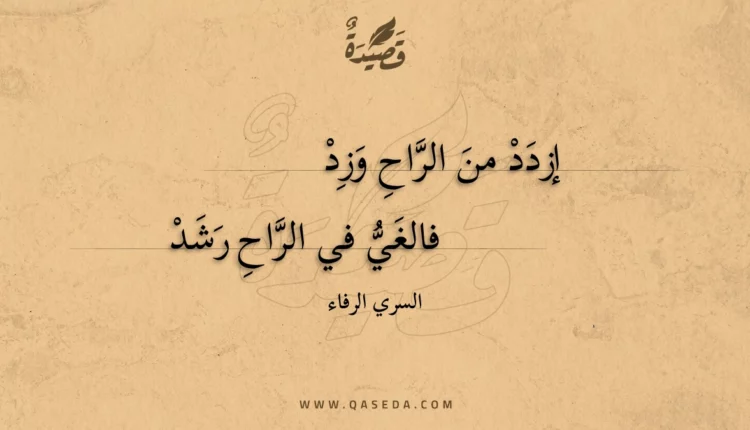 قَصِيدَةٌ
إزدَدْ منَ الرَّاحِ وَزِدْ
فالغَيُّ في الرَّاحِ رَشَدْ
السري الرفاء
WWW.QASEDA.COM